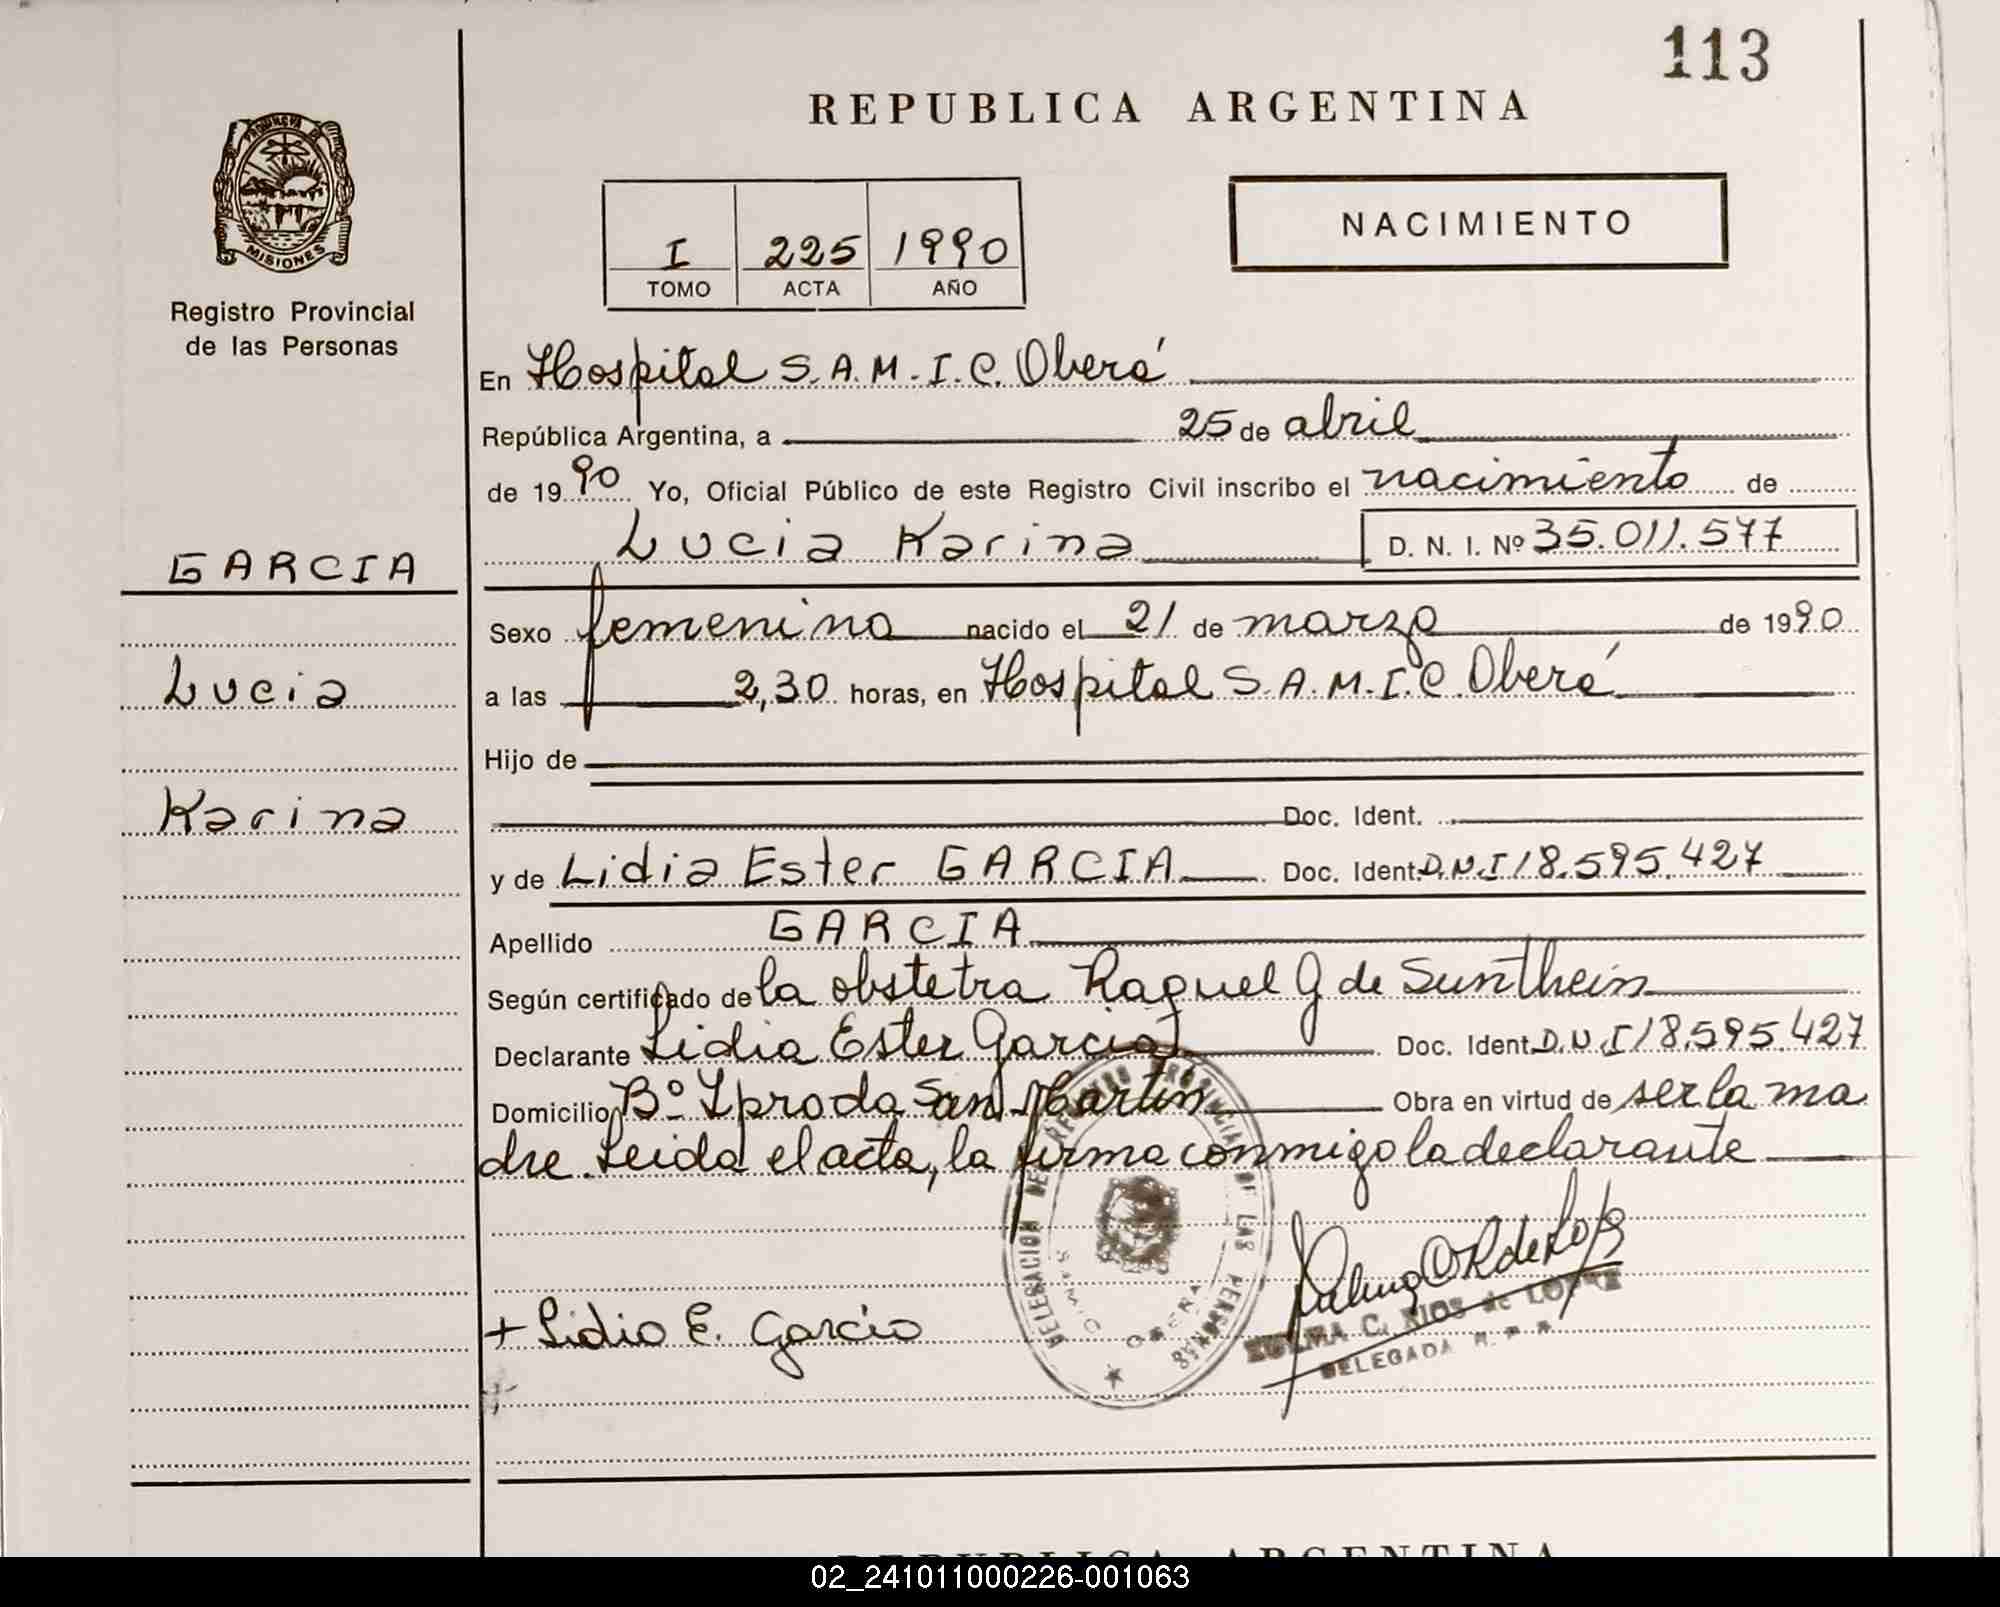 113
REPUBLICA ARGENTINA
PROVINCIA DE
MISIONES
Registro Provincial
de las Personas
I 225 1990
TOMO ACTA AÑO
NACIMIENTO
En Hospital S.A.M.I.C. Oberá
República Argentina, a 25 de abril
de 1990 Yo, Oficial Público de este Registro Civil inscribo el nacimiento de
Lucia Karina D. N. I. Nº 35.011.577
GARCIA
Lucia
Karina
Sexo femenino nacido el 21 de marzo de 1990
a las 2,30 horas, en Hospital S.A.M.I.C. Oberá
Hijo de
Doc. Ident.
y de Lidia Ester GARCIA Doc. Ident. D.N.I 18.595.427
Apellido GARCIA
Según certificado de la obstetra Raquel G de Sunthein
Declarante Lidia Ester Garcia Doc. Ident. D.N.I 18.595.427
Domicilio Bº Iproda San Martín Obra en virtud de ser la ma
dre. Leida el acta, la firma conmigo la declarante
DELEGACION DEL REGISTRO PROVINCIAL DE LAS PERSONAS
SAMIC OBERA
+ Lidia E. Garcia
C. RIOS de LOPEZ
DELEGADA R. P. P.
REPUBLICA ARGENTINA
02_241011000226-001063